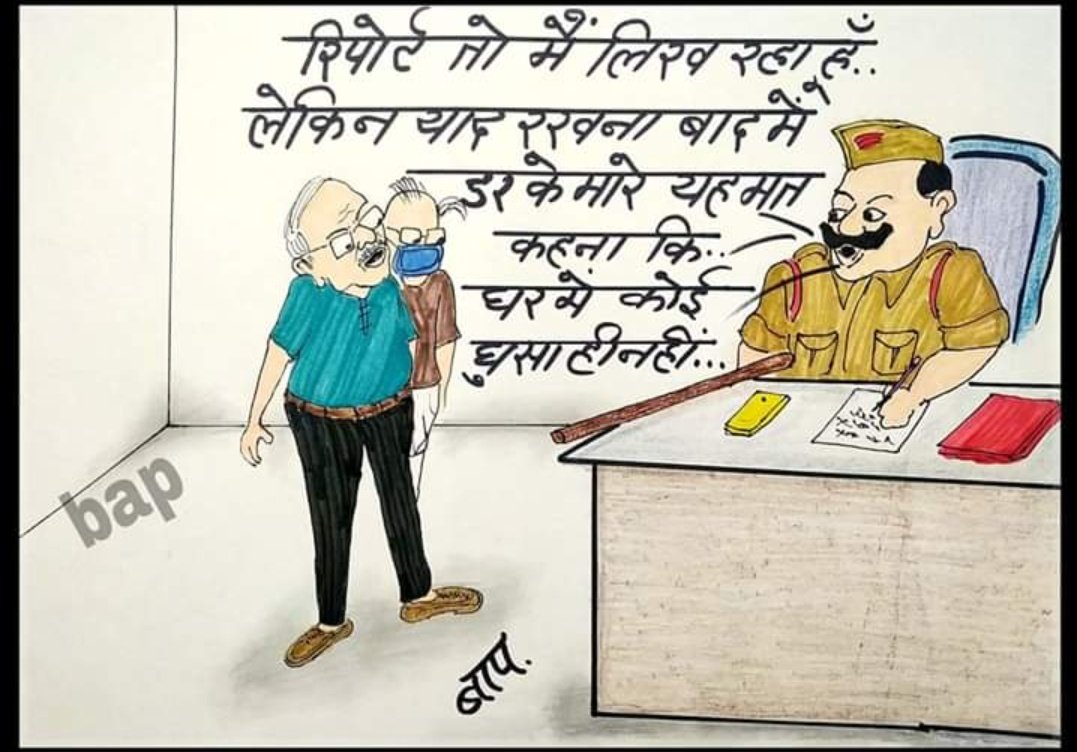 रिपोर्ट तो मैं लिख रहा हूँ..
लेकिन याद रखना बाद में
डर के मारे यह मत
कहना कि..
घर में कोई
घुसा ही नहीं...
bap
बाप.